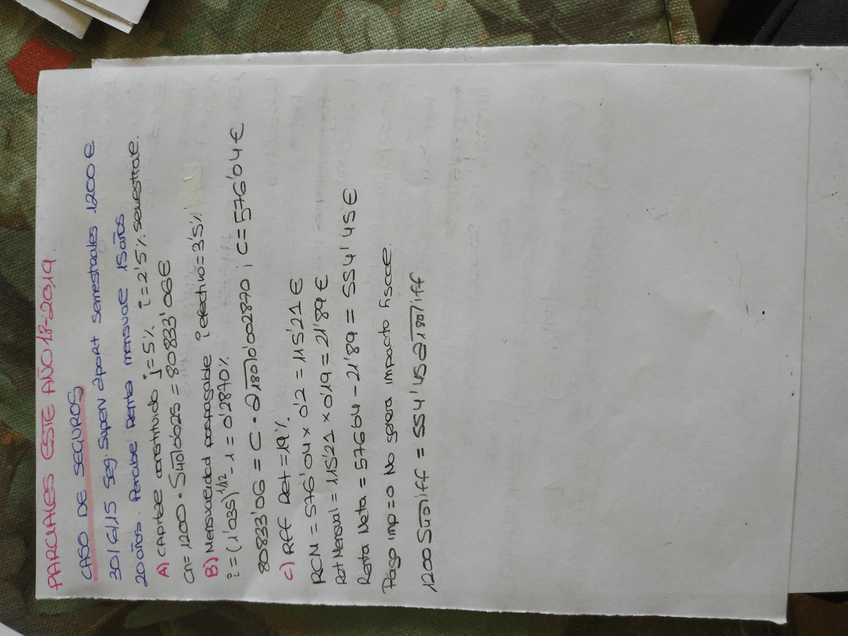 PARCIALES ESTE AÑO 18-2019
CASO DE SEGUROS
30/6/15 Seg. Superv aport semestrales 1200€
20 años. Percibe Renta mensual 15 años
A) Capital constituido j=5% i=2'5% semestral.
Cn = 1200 · S40|0025 = 80833'06€
B) Mensualidad pospagable i efectivo = 3'5%
i = (1'035)^1/12 - 1 = 0'2870%
80833'06 = C · a180|0'002870 ; C = 576'04€
C) RFF Ret = 19%
RCM = 576'04 x 0'2 = 115'21€
Ret Mensual = 115'21 x 0'19 = 21'89€
Renta Neta = 57604 - 21'89 = 554'45€
Pago imp = 0 No genera impacto fiscal.
1200 S40|iff = 554'45 a180|iff